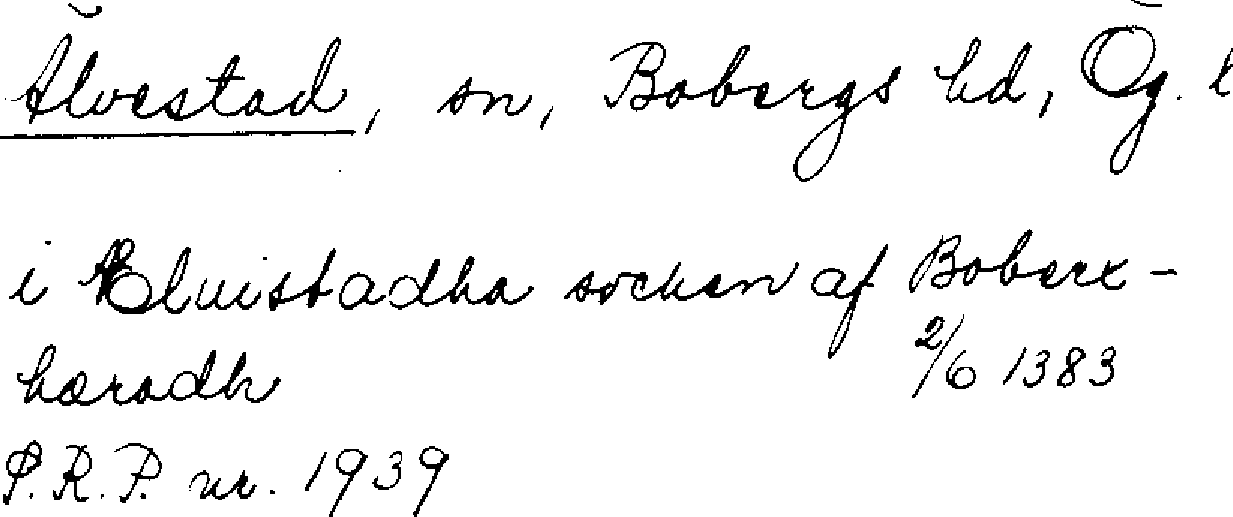 Älvestad, sn, Bobergs hd, Ög. l
i Ælvistadha socken af Boberx-
hæradh 2/6 1383
S.R.P. nr. 1939